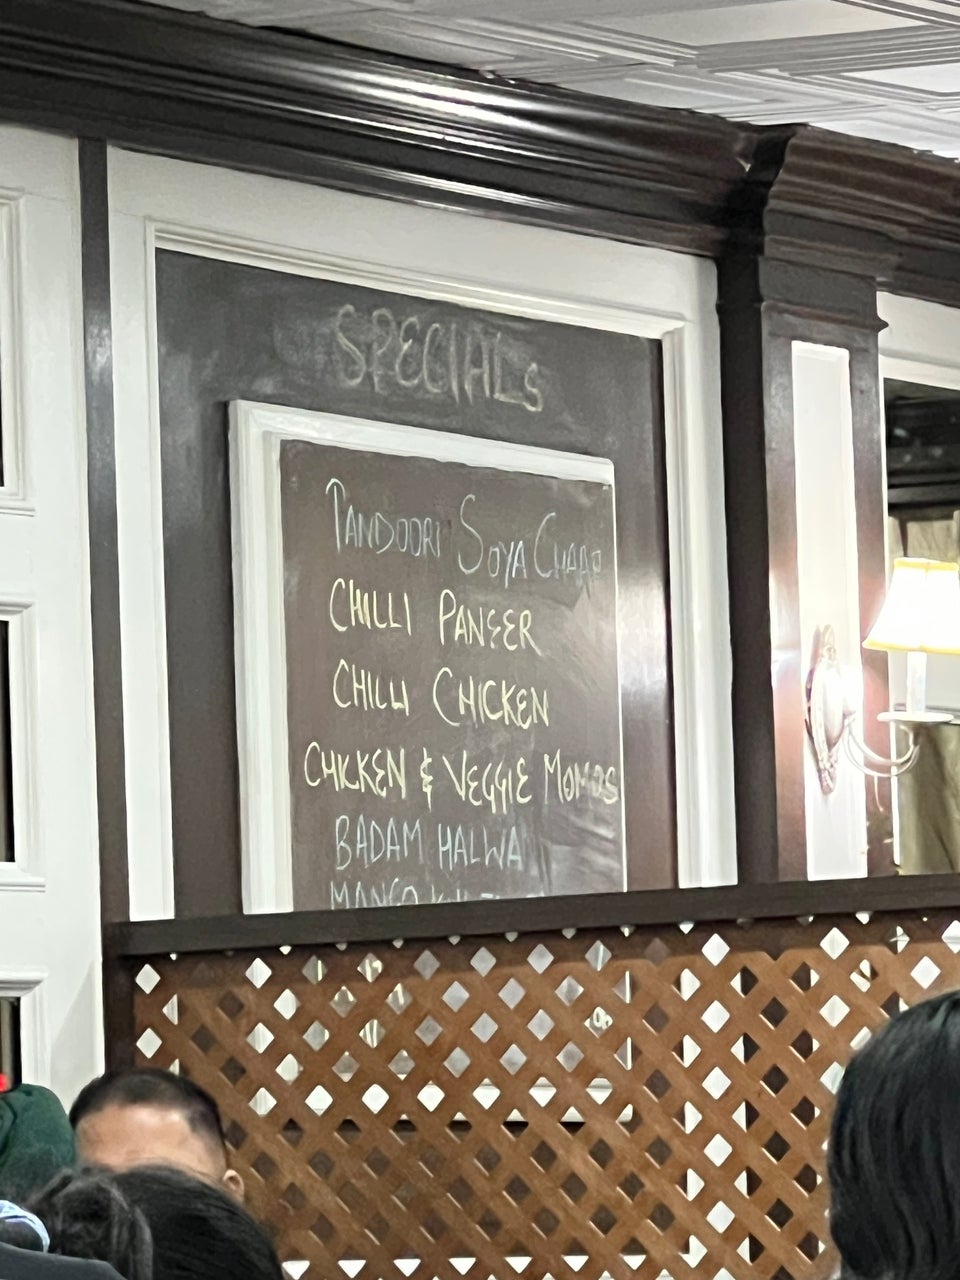 SPECIALS
TANDOORI SOYA CHAAP
CHILLI PANEER
CHILLI CHICKEN
CHICKEN & VEGGIE MOMOS
BADAM HALWA
MANGO